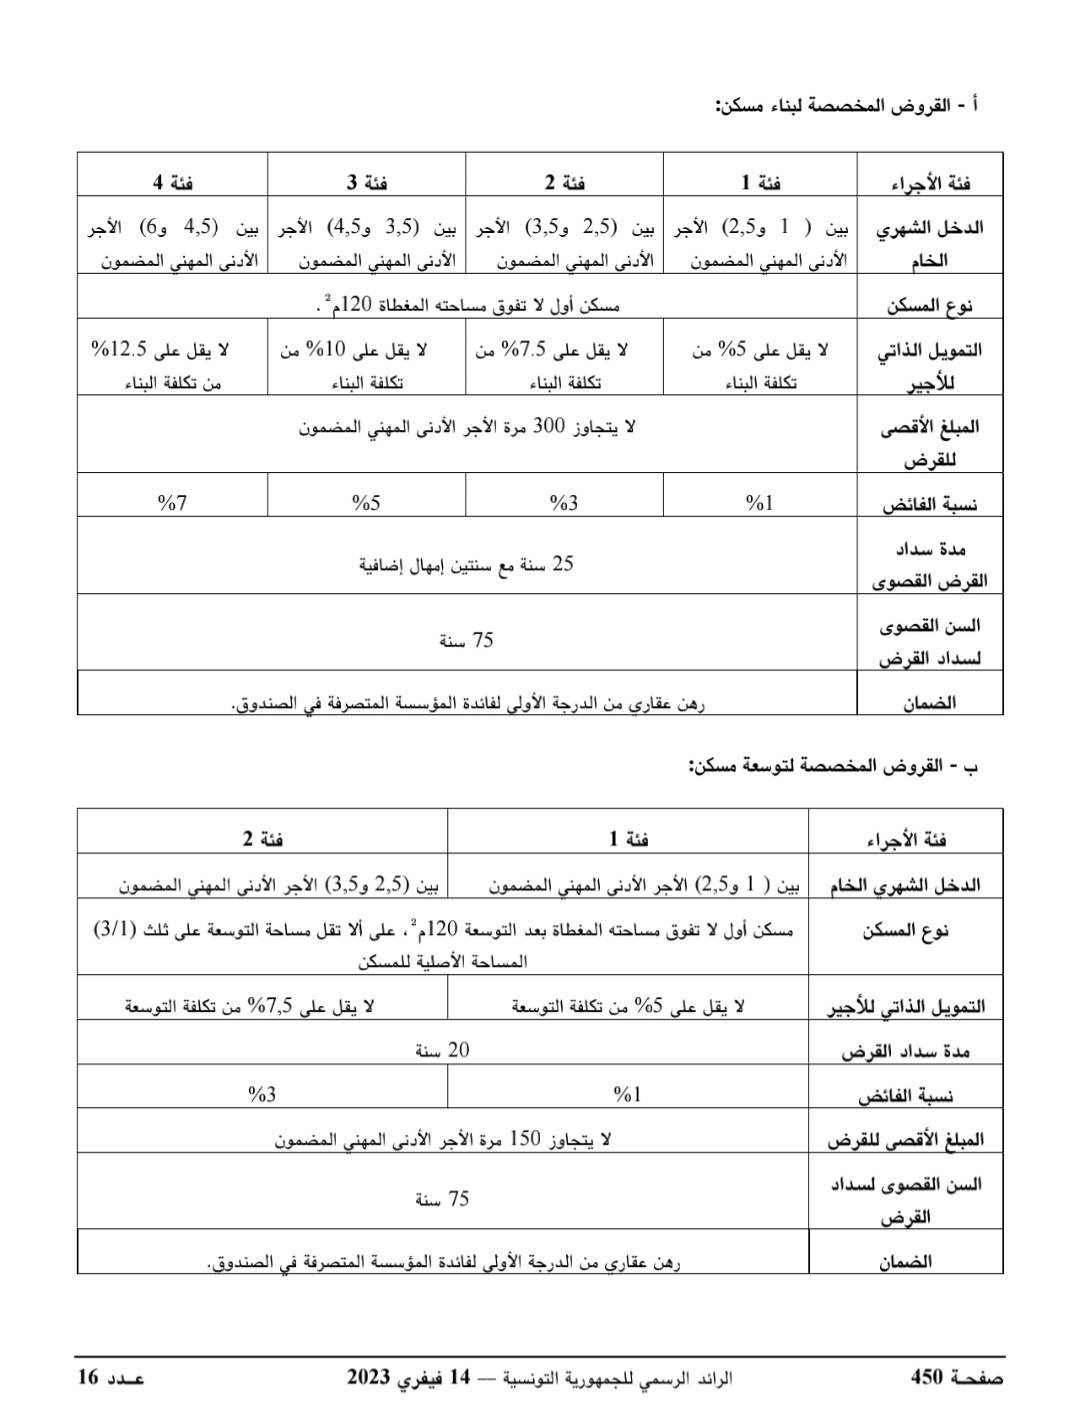 أ - القروض المخصصة لبناء مسكن:
فئة الأجراء فئة 1 فئة 2 فئة 3 فئة 4
الدخل الشهري بين ( 1 و2,5) الأجر بين (2,5 و3,5) الأجر بين (3,5 و4,5) الأجر بين (4,5 و6) الأجر
الخام الأدنى المهني المضمون الأدنى المهني المضمون الأدنى المهني المضمون الأدنى المهني المضمون
نوع المسكن مسكن أول لا تفوق مساحته المغطاة 120م².
التمويل الذاتي لا يقل على 5% من لا يقل على 7.5% من لا يقل على 10% من لا يقل على 12.5%
للأجير تكلفة البناء تكلفة البناء تكلفة البناء من تكلفة البناء
المبلغ الأقصى لا يتجاوز 300 مرة الأجر الأدنى المهني المضمون
للقرض
نسبة الفائض 1% 3% 5% 7%
مدة سداد
25 سنة مع سنتين إمهال إضافية
القرض القصوى
السن القصوى
75 سنة
لسداد القرض
الضمان رهن عقاري من الدرجة الأولى لفائدة المؤسسة المتصرفة في الصندوق.
ب - القروض المخصصة لتوسعة مسكن:
فئة الأجراء فئة 1 فئة 2
الدخل الشهري الخام بين ( 1 و2,5) الأجر الأدنى المهني المضمون بين (2,5 و3,5) الأجر الأدنى المهني المضمون
نوع المسكن مسكن أول لا تفوق مساحته المغطاة بعد التوسعة 120م²، على ألا تقل مساحة التوسعة على ثلث (3/1)
المساحة الأصلية للمسكن
التمويل الذاتي للأجير لا يقل على 5% من تكلفة التوسعة لا يقل على 7,5% من تكلفة التوسعة
مدة سداد القرض 20 سنة
نسبة الفائض 1% 3%
المبلغ الأقصى للقرض لا يتجاوز 150 مرة الأجر الأدنى المهني المضمون
السن القصوى لسداد
75 سنة
القرض
الضمان رهن عقاري من الدرجة الأولى لفائدة المؤسسة المتصرفة في الصندوق.
صفحة 450 الرائد الرسمي للجمهورية التونسية — 14 فيفري 2023 عـدد 16